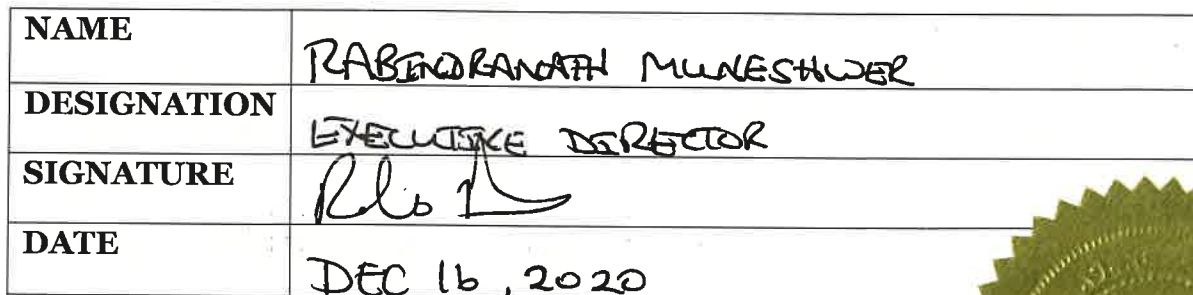 NAME RABINDRANATH MUNESHWER
DESIGNATION EXECUTIVE DIRECTOR
SIGNATURE
DATE DEC 16, 2020